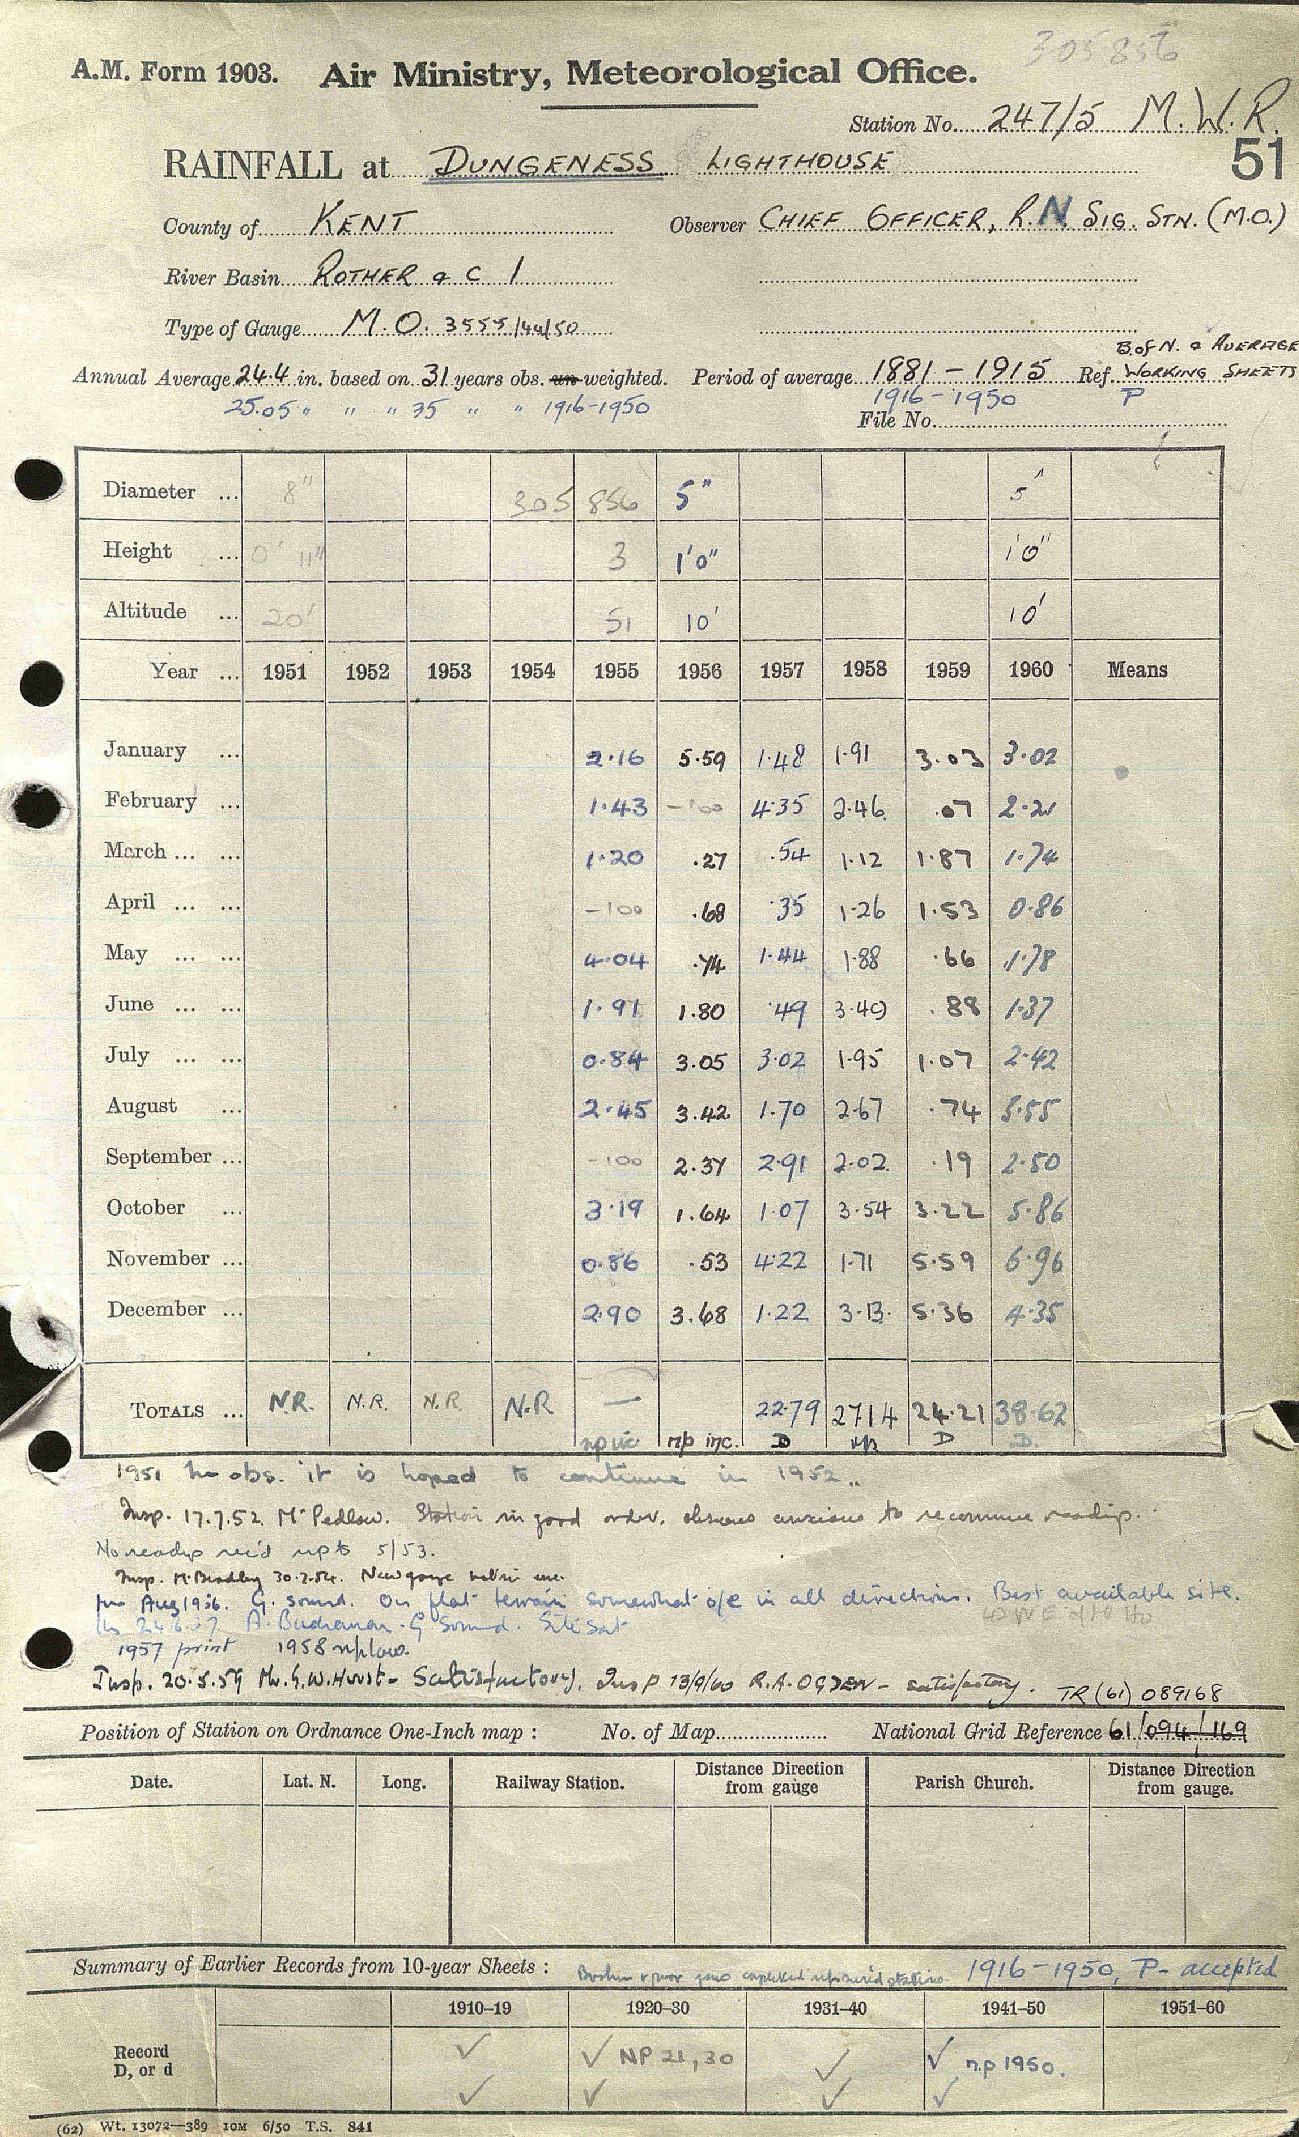 305856
A.M. Form 1903. Air Ministry, Meteorological Office.
Station No. 247/5 M.W.R.
51
RAINFALL at DUNGENESS LIGHTHOUSE
County of KENT Observer CHIEF OFFICER, R.N. SIG. STN. (M.O.)
River Basin ROTHER & C 1
Type of Gauge M.O. 3555/44/50
B of N. & AVERAGE
Annual Average 24.4 in. based on 31 years obs. un-weighted. Period of average 1881-1915 Ref. WORKING SHEETS
25.05 " " " 35 " " 1916-1950 1916-1950 P
File No.
Diameter ... 8" 305 856 5" 5"
Height ... 0' 11" 3 1'0" 1'0"
Altitude ... 20' 51 10' 10'
Year ... 1951 1952 1953 1954 1955 1956 1957 1958 1959 1960 Means
January ... 2.16 5.59 1.48 1.91 3.03 3.02
February ... 1.43 -100 4.35 2.46 .07 2.21
March ... ... 1.20 .27 .54 1.12 1.87 1.74
April ... ... -100 .68 .35 1.26 1.53 0.86
May ... ... 4.04 .74 1.44 1.88 .66 1.78
June ... ... 1.91 1.80 .49 3.49 .88 1.37
July ... ... 0.84 3.05 3.02 1.95 1.07 2.42
August ... 2.45 3.42 1.70 2.67 .74 5.55
September ... -100 2.37 2.91 2.02 .19 2.50
October ... 3.19 1.64 1.07 3.54 3.22 5.86
November ... 0.86 .53 4.22 1.71 5.59 6.96
December ... 2.90 3.68 1.22 3.13 5.36 4.35
TOTALS ... N.R. N.R. N.R. N.R. — 22.79 27.14 24.21 38.62
np inc np inc. D np D D.
1951 no obs. it is hoped to continue in 1952.
Insp. 17.7.52 Mr Pedlow. Station in good order, observer anxious to recommence readings.
No readings rec'd up to 5/53.
Insp. Mr Bradley 30.7.54. New gauge in use.
Aug 1956. G. sound. On flat terrain somewhat o/e in all directions. Best available site.
A. Buchanan. G sound. Site sat
1957 print 1958 np
Insp. 20.5.59 Mr. G.W. Hurst - Satisfactory. Insp 13/9/60 R.A. OGDEN - satisfactory. TR (61) 089168
Position of Station on Ordnance One-Inch map : No. of Map National Grid Reference 61/094/169
Date. Lat. N. Long. Railway Station. Distance Direction from gauge Parish Church. Distance Direction from gauge.
Summary of Earlier Records from 10-year Sheets : 1916-1950, P- accepted
1910–19 1920–30 1931–40 1941–50 1951–60
Record ✓ ✓ NP 21, 30 ✓ ✓ n.p 1950.
D, or d ✓ ✓ ✓ ✓
(62) Wt. 13072—389 10M 6/50 T.S. 841